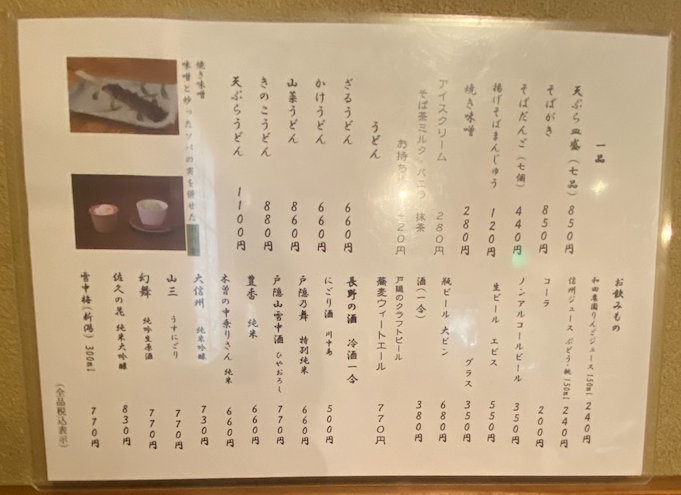 一品
天ぷら皿盛(七品) 850円
そばがき 850円
そばだんご(七個) 440円
揚げそばまんじゅう 120円
焼き味噌 280円
アイスクリーム 280円
そば茶ミルク・バニラ・抹茶
お持ち +20円
うどん
ざるうどん 660円
かけうどん 660円
山菜うどん 860円
きのこうどん 880円
天ぷらうどん 1100円
焼き味噌
味噌と炒ったソバの実を併せた
お飲みもの
和田農園りんごジュース 150ml 240円
信州ジュース ぶどう・桃 150ml 240円
コーラ 200円
ノンアルコールビール 350円
生ビール エビス 550円
グラス 350円
瓶ビール 大ビン 680円
酒(一合) 380円
戸隠のクラフトビール
蕎麦ウィートエール 770円
長野の酒 冷酒一合
にごり酒 川中島 500円
戸隠乃舞 特別純米 660円
戸隠山雪中酒 ひやおろし 770円
豊香 純米 660円
木曽の中乗りさん 純米 660円
大信州 純米吟醸 730円
山三 うすにごり 770円
幻舞 純吟生原酒 770円
佐久の花 純米大吟醸 830円
雪中梅(新潟)300ml 770円
(全品税込表示)